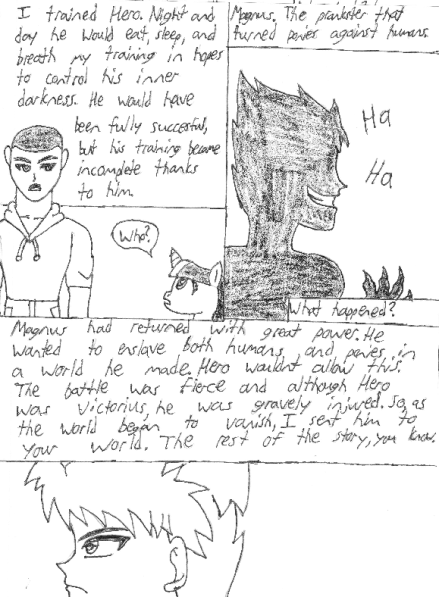 I trained Hero. Night and
day he would eat, sleep, and
breath my training in hopes
to control his inner
darkness. He would have
been fully succesful,
but his training became
incomplete thanks
to him
Magnus. The prankster that
turned ponies against humans.
Ha
Ha
Who?
What happened?
Magnus had returned with great power. He
wanted to enslave both humans and ponies in
a world he made. Hero wouldnt allow this.
The battle was fierce and although Hero
was victorius, he was gravely injured. So, as
the world began to vanish, I sent him to
your world. The rest of the story, you know.